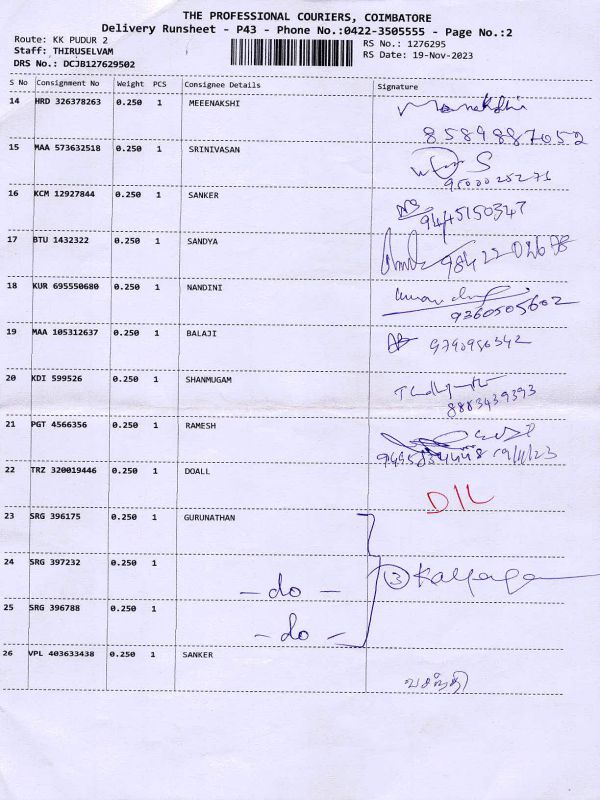 THE PROFESSIONAL COURIERS, COIMBATORE
Delivery Runsheet - P43 - Phone No.:0422-3505555 - Page No.:2
Route: KK PUDUR 2
Staff: THIRUSELVAM
DRS No.: DCJB127629502
RS No.: 1276295
RS Date: 19-Nov-2023
S No Consignment No Weight PCS Consignee Details Signature
14 HRD 326378263 0.250 1 MEEENAKSHI
8589887052
15 MAA 573632518 0.250 1 SRINIVASAN
16 KCM 12927844 0.250 1 SANKER
9445150347
17 BTU 1432322 0.250 1 SANDYA
18 KUR 695550680 0.250 1 NANDINI
9360505602
19 MAA 105312637 0.250 1 BALAJI
20 KDI 599526 0.250 1 SHANMUGAM
8883439393
21 PGT 4566356 0.250 1 RAMESH
19/11/23
22 TRZ 320019446 0.250 1 DOALL
D/L
23 SRG 396175 0.250 1 GURUNATHAN
24 SRG 397232 0.250 1
- do -
3
25 SRG 396788 0.250 1
- do -
26 VPL 403633438 0.250 1 SANKER
வசந்தி